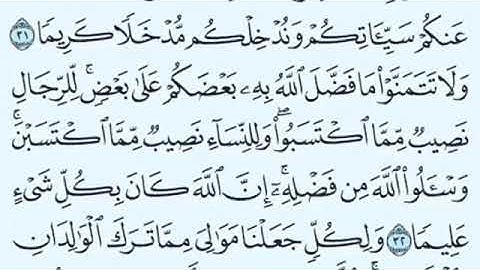 عَنكُمْ سَيِّـَٔاتِكُمْ وَنُدْخِلْكُم مُّدْخَلًا كَرِيمًا ٣١
وَلَا تَتَمَنَّوْا۟ مَا فَضَّلَ ٱللَّهُ بِهِۦ بَعْضَكُمْ عَلَىٰ بَعْضٍ ۚ لِّلرِّجَالِ
نَصِيبٌ مِّمَّا ٱكْتَسَبُوا۟ ۖ وَلِلنِّسَآءِ نَصِيبٌ مِّمَّا ٱكْتَسَبْنَ ۚ
وَسْـَٔلُوا۟ ٱللَّهَ مِن فَضْلِهِۦٓ ۗ إِنَّ ٱللَّهَ كَانَ بِكُلِّ شَىْءٍ
عَلِيمًا ٣٢ وَلِكُلٍّ جَعَلْنَا مَوَٰلِىَ مِمَّا تَرَكَ ٱلْوَٰلِدَانِ